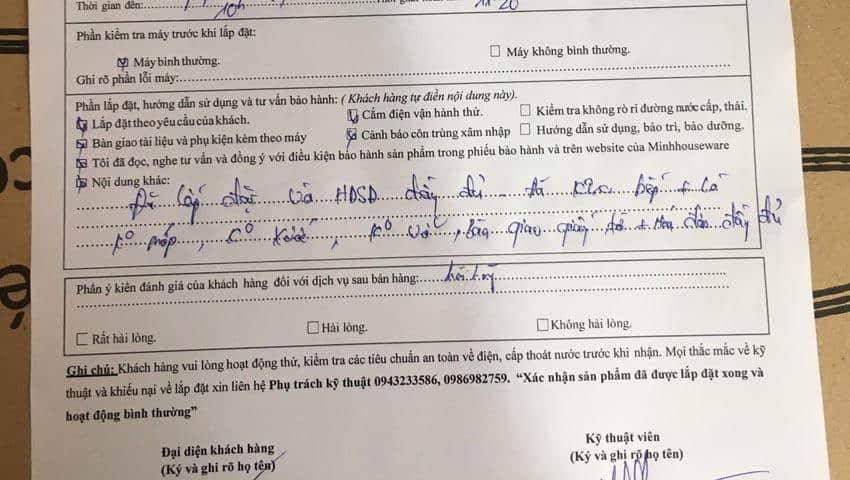 Thời gian đến: 10h
Phần kiểm tra máy trước khi lắp đặt:
Máy bình thường.
Máy không bình thường.
Ghi rõ phần lỗi máy:
Phần lắp đặt, hướng dẫn sử dụng và tư vấn bảo hành: ( Khách hàng tự điền nội dung này).
Lắp đặt theo yêu cầu của khách. Cắm điện vận hành thử. Kiểm tra không rò rỉ đường nước cấp, thải.
Bàn giao tài liệu và phụ kiện kèm theo máy Cảnh báo côn trùng xâm nhập Hướng dẫn sử dụng, bảo trì, bảo dưỡng.
Tôi đã đọc, nghe tư vấn và đồng ý với điều kiện bảo hành sản phẩm trong phiếu bảo hành và trên website của Minhhouseware
Nội dung khác:
Đã lắp đặt và HDSD đầy đủ - đã bếp
bàn giao giấy đầy đủ
Phần ý kiến đánh giá của khách hàng đối với dịch vụ sau bán hàng:
Rất hài lòng. Hài lòng. Không hài lòng.
Ghi chú: Khách hàng vui lòng hoạt động thử, kiểm tra các tiêu chuẩn an toàn về điện, cấp thoát nước trước khi nhận. Mọi thắc mắc về kỹ
thuật và khiếu nại về lắp đặt xin liên hệ Phụ trách kỹ thuật 0943233586, 0986982759. “Xác nhận sản phẩm đã được lắp đặt xong và
hoạt động bình thường”
Đại diện khách hàng
(Ký và ghi rõ họ tên)
Kỹ thuật viên
(Ký và ghi rõ họ tên)